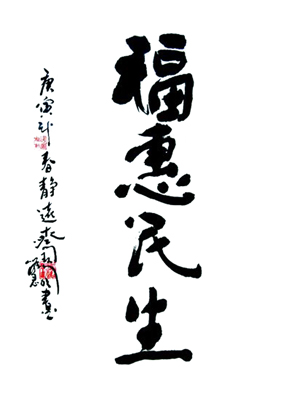 福惠民生
庚寅 春静远斋
书